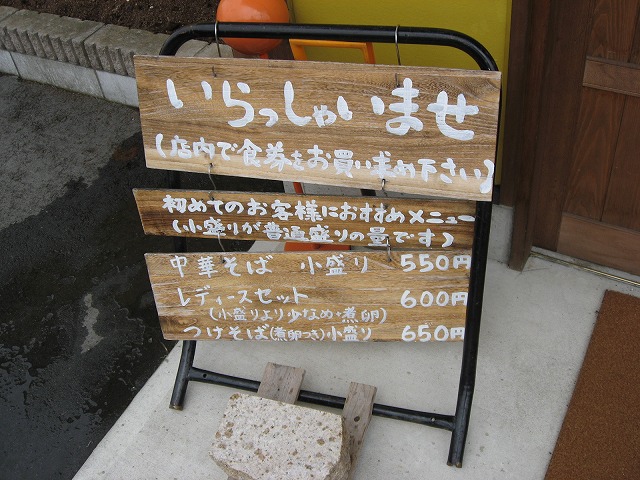 いらっしゃいませ
(店内で食券をお買い求め下さい)
初めてのお客様におすすめメニュー
(小盛りが普通盛りの量です)
中華そば 小盛り 550円
レディースセット 600円
(小盛りより少なめ・煮卵)
つけそば(煮卵つき)小盛り 650円